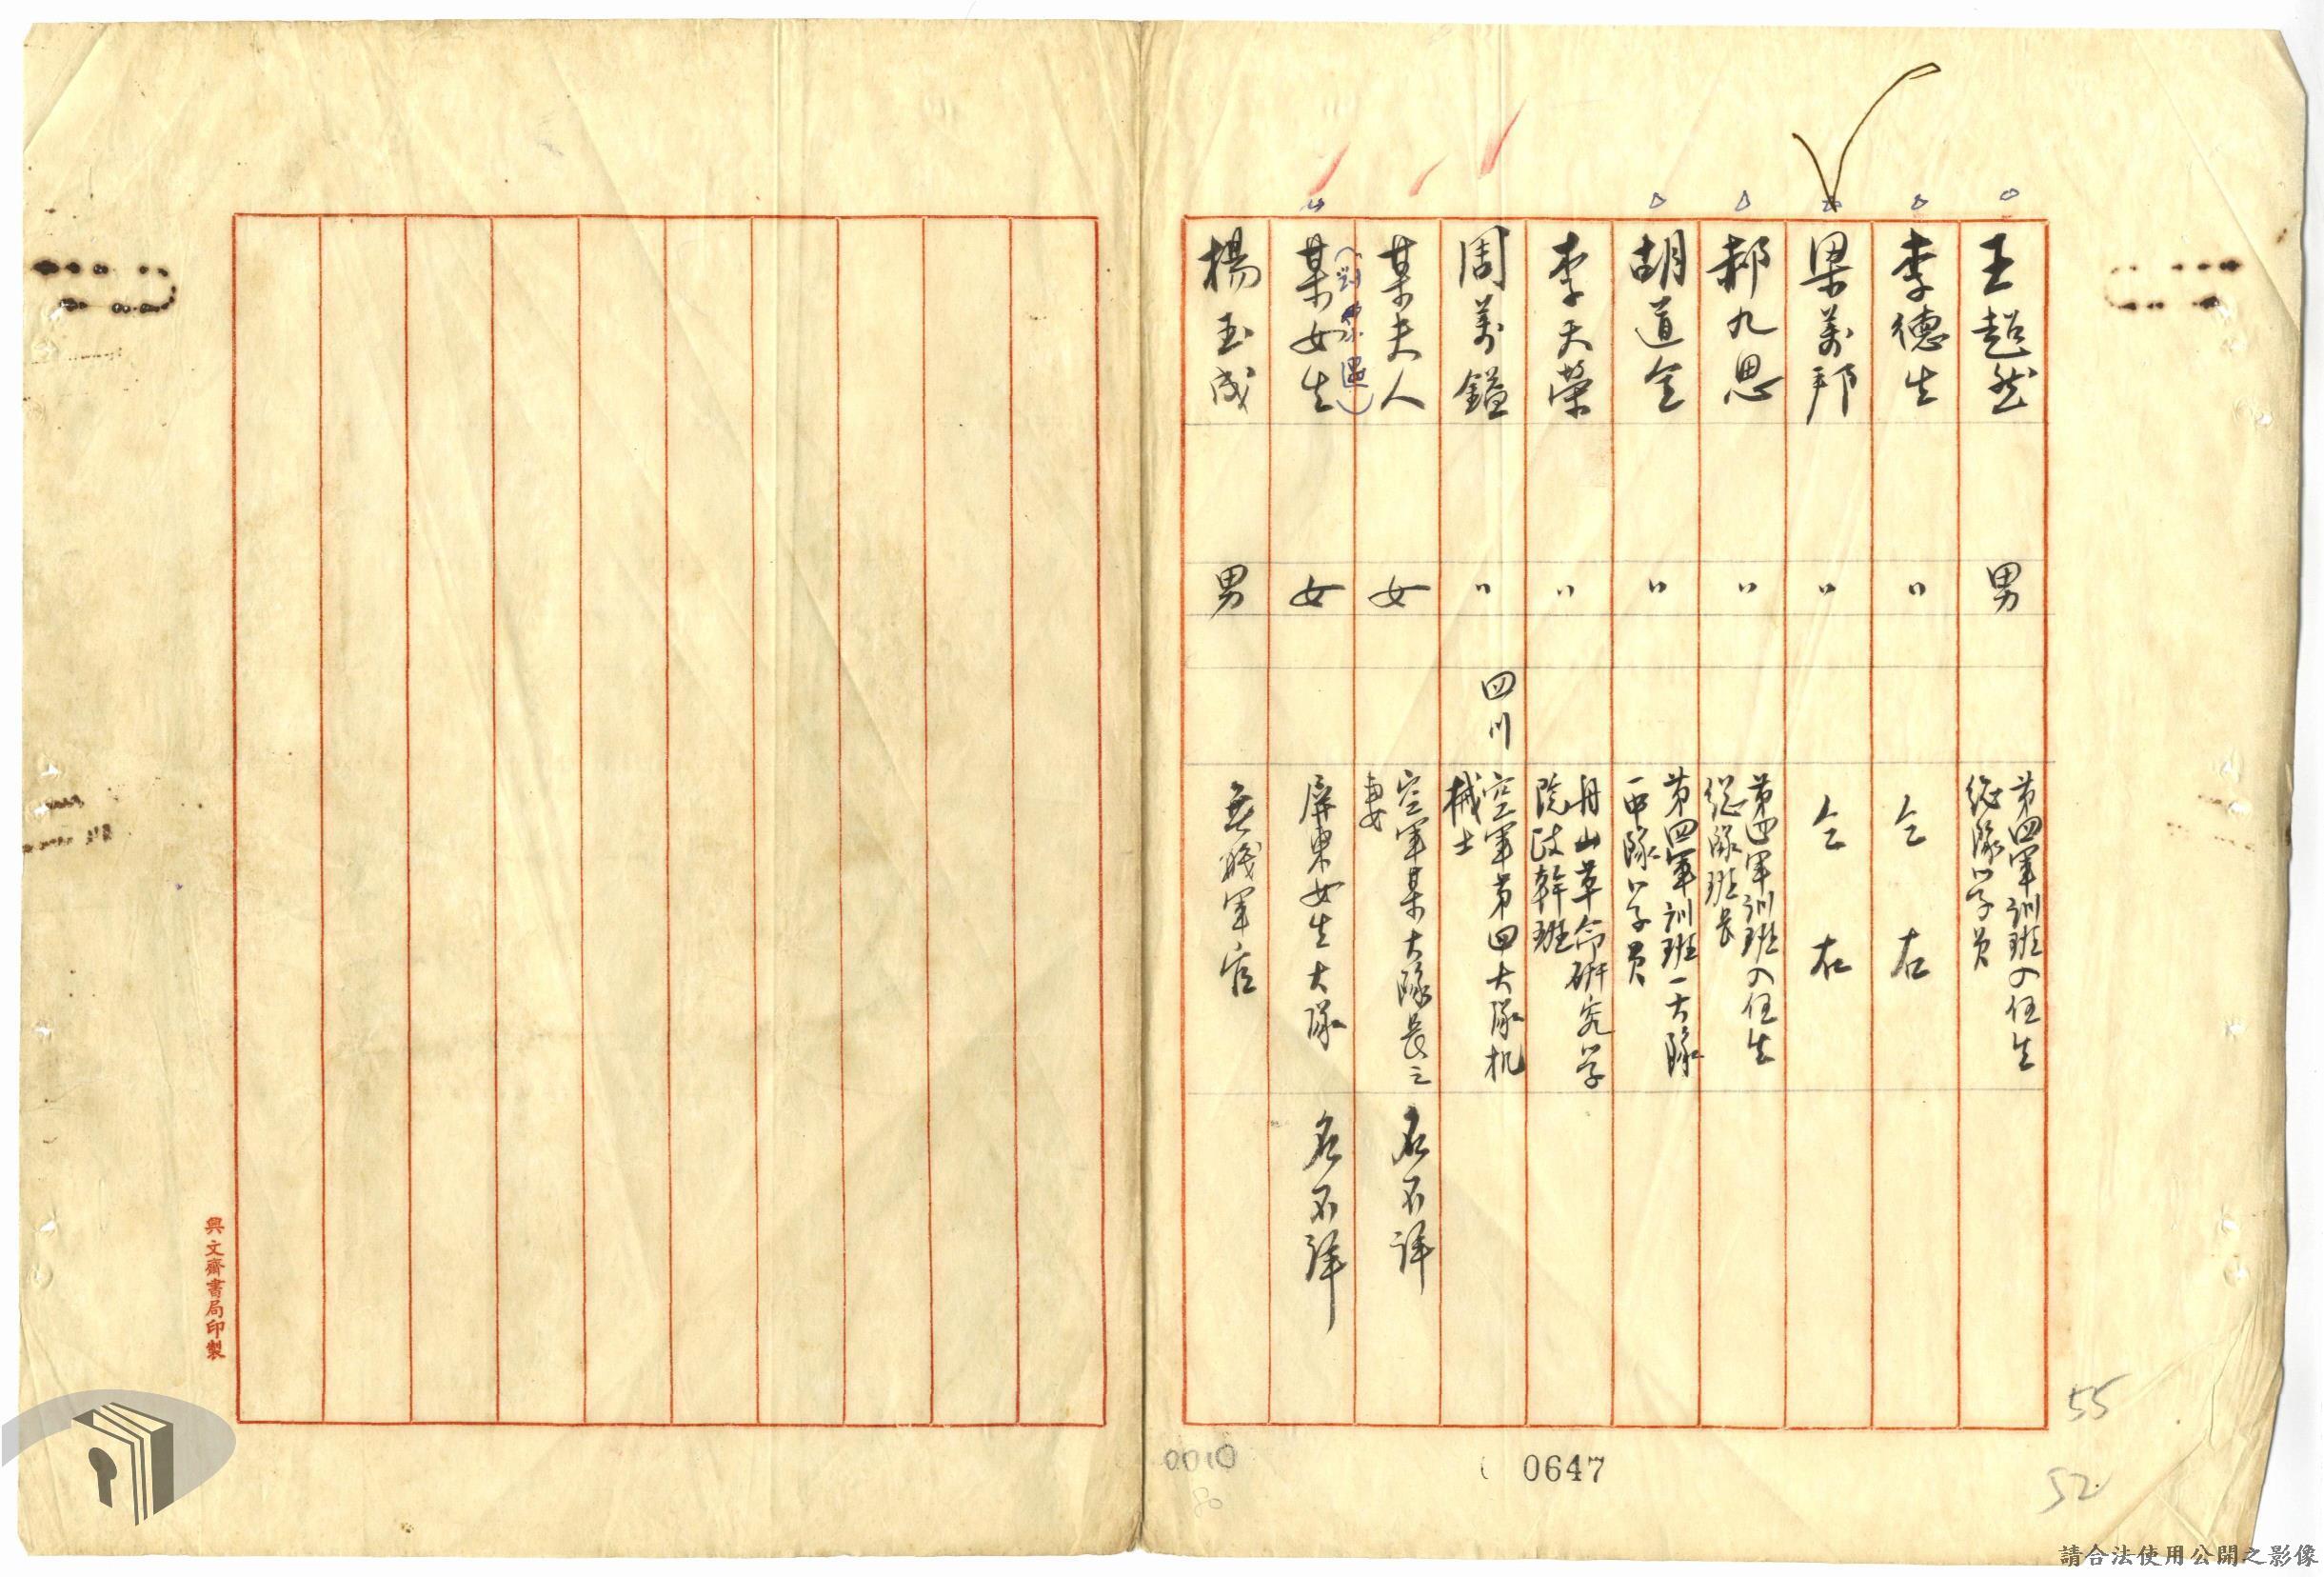 王超然 男 第四軍訓班入伍生
總隊学員
李德生 〃 仝右
梁萬邦 〃 仝右
郝九思 〃 第四軍訓班入伍生
總隊班長
胡道全 〃 第四軍訓班一大隊
一中隊学員
李天榮 〃 舟山革命研究学
院政幹班
周萬鎰 〃 四川 空軍第四大隊机
械士
某夫人 女 空軍某大隊長之
妻 名不详
某女生 女 屏東女生大隊 名不詳
楊玉成 男 無職軍官
興文齋書局印製
0010
0647
55
52
請合法使用公開之影像